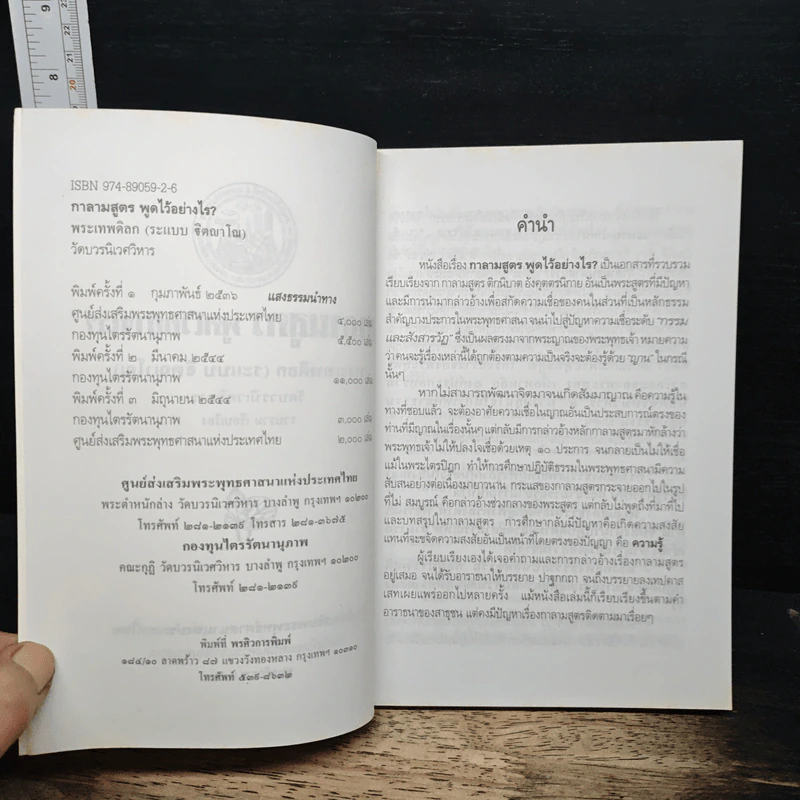 ISBN 974-89059-2-6
กาลามสูตร พูดไว้อย่างไร?
พระเทพดิลก (ระแบบ ฐิตญาโณ)
วัดบวรนิเวศวิหาร
พิมพ์ครั้งที่ ๑ กุมภาพันธ์ ๒๕๓๖ แสงธรรมนำทาง
ศูนย์ส่งเสริมพระพุทธศาสนาแห่งประเทศไทย ๔,๐๐๐ เล่ม
กองทุนไตรรัตนานุภาพ ๕,๕๐๐ เล่ม
พิมพ์ครั้งที่ ๒ มีนาคม ๒๕๔๔
กองทุนไตรรัตนานุภาพ ๑๑,๐๐๐ เล่ม
พิมพ์ครั้งที่ ๓ มิถุนายน ๒๕๔๔
กองทุนไตรรัตนานุภาพ ๓,๐๐๐ เล่ม
ศูนย์ส่งเสริมพระพุทธศาสนาแห่งประเทศไทย ๒,๐๐๐ เล่ม
ศูนย์ส่งเสริมพระพุทธศาสนาแห่งประเทศไทย
พระตำหนักล่าง วัดบวรนิเวศวิหาร บางลำพู กรุงเทพฯ ๑๐๒๐๐
โทรศัพท์ ๒๘๑-๒๑๓๙ โทรสาร ๒๘๑-๓๖๗๕
กองทุนไตรรัตนานุภาพ
คณะกุฏิ วัดบวรนิเวศวิหาร บางลำพู กรุงเทพฯ ๑๐๒๐๐
โทรศัพท์ ๒๘๑-๒๑๓๙
พิมพ์ที่ พรศิวการพิมพ์
๑๘๔/๑๐ ลาดพร้าว ๘๗ แขวงวังทองหลาง กรุงเทพฯ ๑๐๓๑๐
โทรศัพท์ ๕๓๙-๘๖๓๒
คำนำ
หนังสือเรื่อง กาลามสูตร พูดไว้อย่างไร? เป็นเอกสารที่รวบรวม
เรียบเรียงจาก กาลามสูตร ติกนิบาต อังคุตตรนิกาย อันเป็นพระสูตรที่มีปัญหา
และมีการนำมากล่าวอ้างเพื่อสกัดความเชื่อของคนในส่วนที่เป็นหลักธรรม
สำคัญบางประการในพระพุทธศาสนา จนนำไปสู่ปัญหาความเชื่อระดับ "กรรม
และสังสารวัฏ" ซึ่งเป็นผลตรงมาจากพระญาณของพระพุทธเจ้า หมายความ
ว่า คนจะรู้เรื่องเหล่านี้ได้ถูกต้องตามความเป็นจริงจะต้องรู้ด้วย "ญาน" ในกรณี
นั้นๆ
หากไม่สามารถพัฒนาจิตมาจนเกิดสัมมาญาณ คือความรู้ใน
ทางที่ชอบแล้ว จะต้องอาศัยความเชื่อในญาณอันเป็นประสบการณ์ตรงของ
ท่านที่มีญาณในเรื่องนั้นๆ แต่กลับมีการกล่าวอ้างหลักกาลามสูตรมาหักล้างว่า
พระพุทธเจ้าไม่ให้ปลงใจเชื่อด้วยเหตุ ๑๐ ประการ จนกลายเป็นไม่ให้เชื่อ
แม้ในพระไตรปิฎก ทำให้การศึกษาปฏิบัติธรรมในพระพุทธศาสนามีความ
สับสนอย่างต่อเนื่องมายาวนาน กระแสของกาลามสูตรกระจายออกไปในรูป
ที่ไม่ สมบูรณ์ คือกล่าวอ้างช่วงกลางของพระสูตร แต่กลับไม่พูดถึงที่มาที่ไป
และบทสรุปในกาลามสูตร การศึกษากลับมีปัญหาคือเกิดความสงสัย
แทนที่จะขจัดความสงสัยอันเป็นหน้าที่โดยตรงของปัญญา คือ ความรู้
ผู้เรียบเรียงเองได้เจอคำถามและการกล่าวอ้างเรื่องกาลามสูตร
อยู่เสมอ จนได้รับอาราธนาให้บรรยาย ปาฐกถา จนถึงบรรยายลงเทปคาส
เสทเผยแพร่ออกไปหลายครั้ง แม้หนังสือเล่มนี้ก็เรียบเรียงขึ้นตามคำ
อาราธนาของสาธุชน แต่คงมีปัญหาเรื่องกาลามสูตรติดตามมาเรื่อยๆ